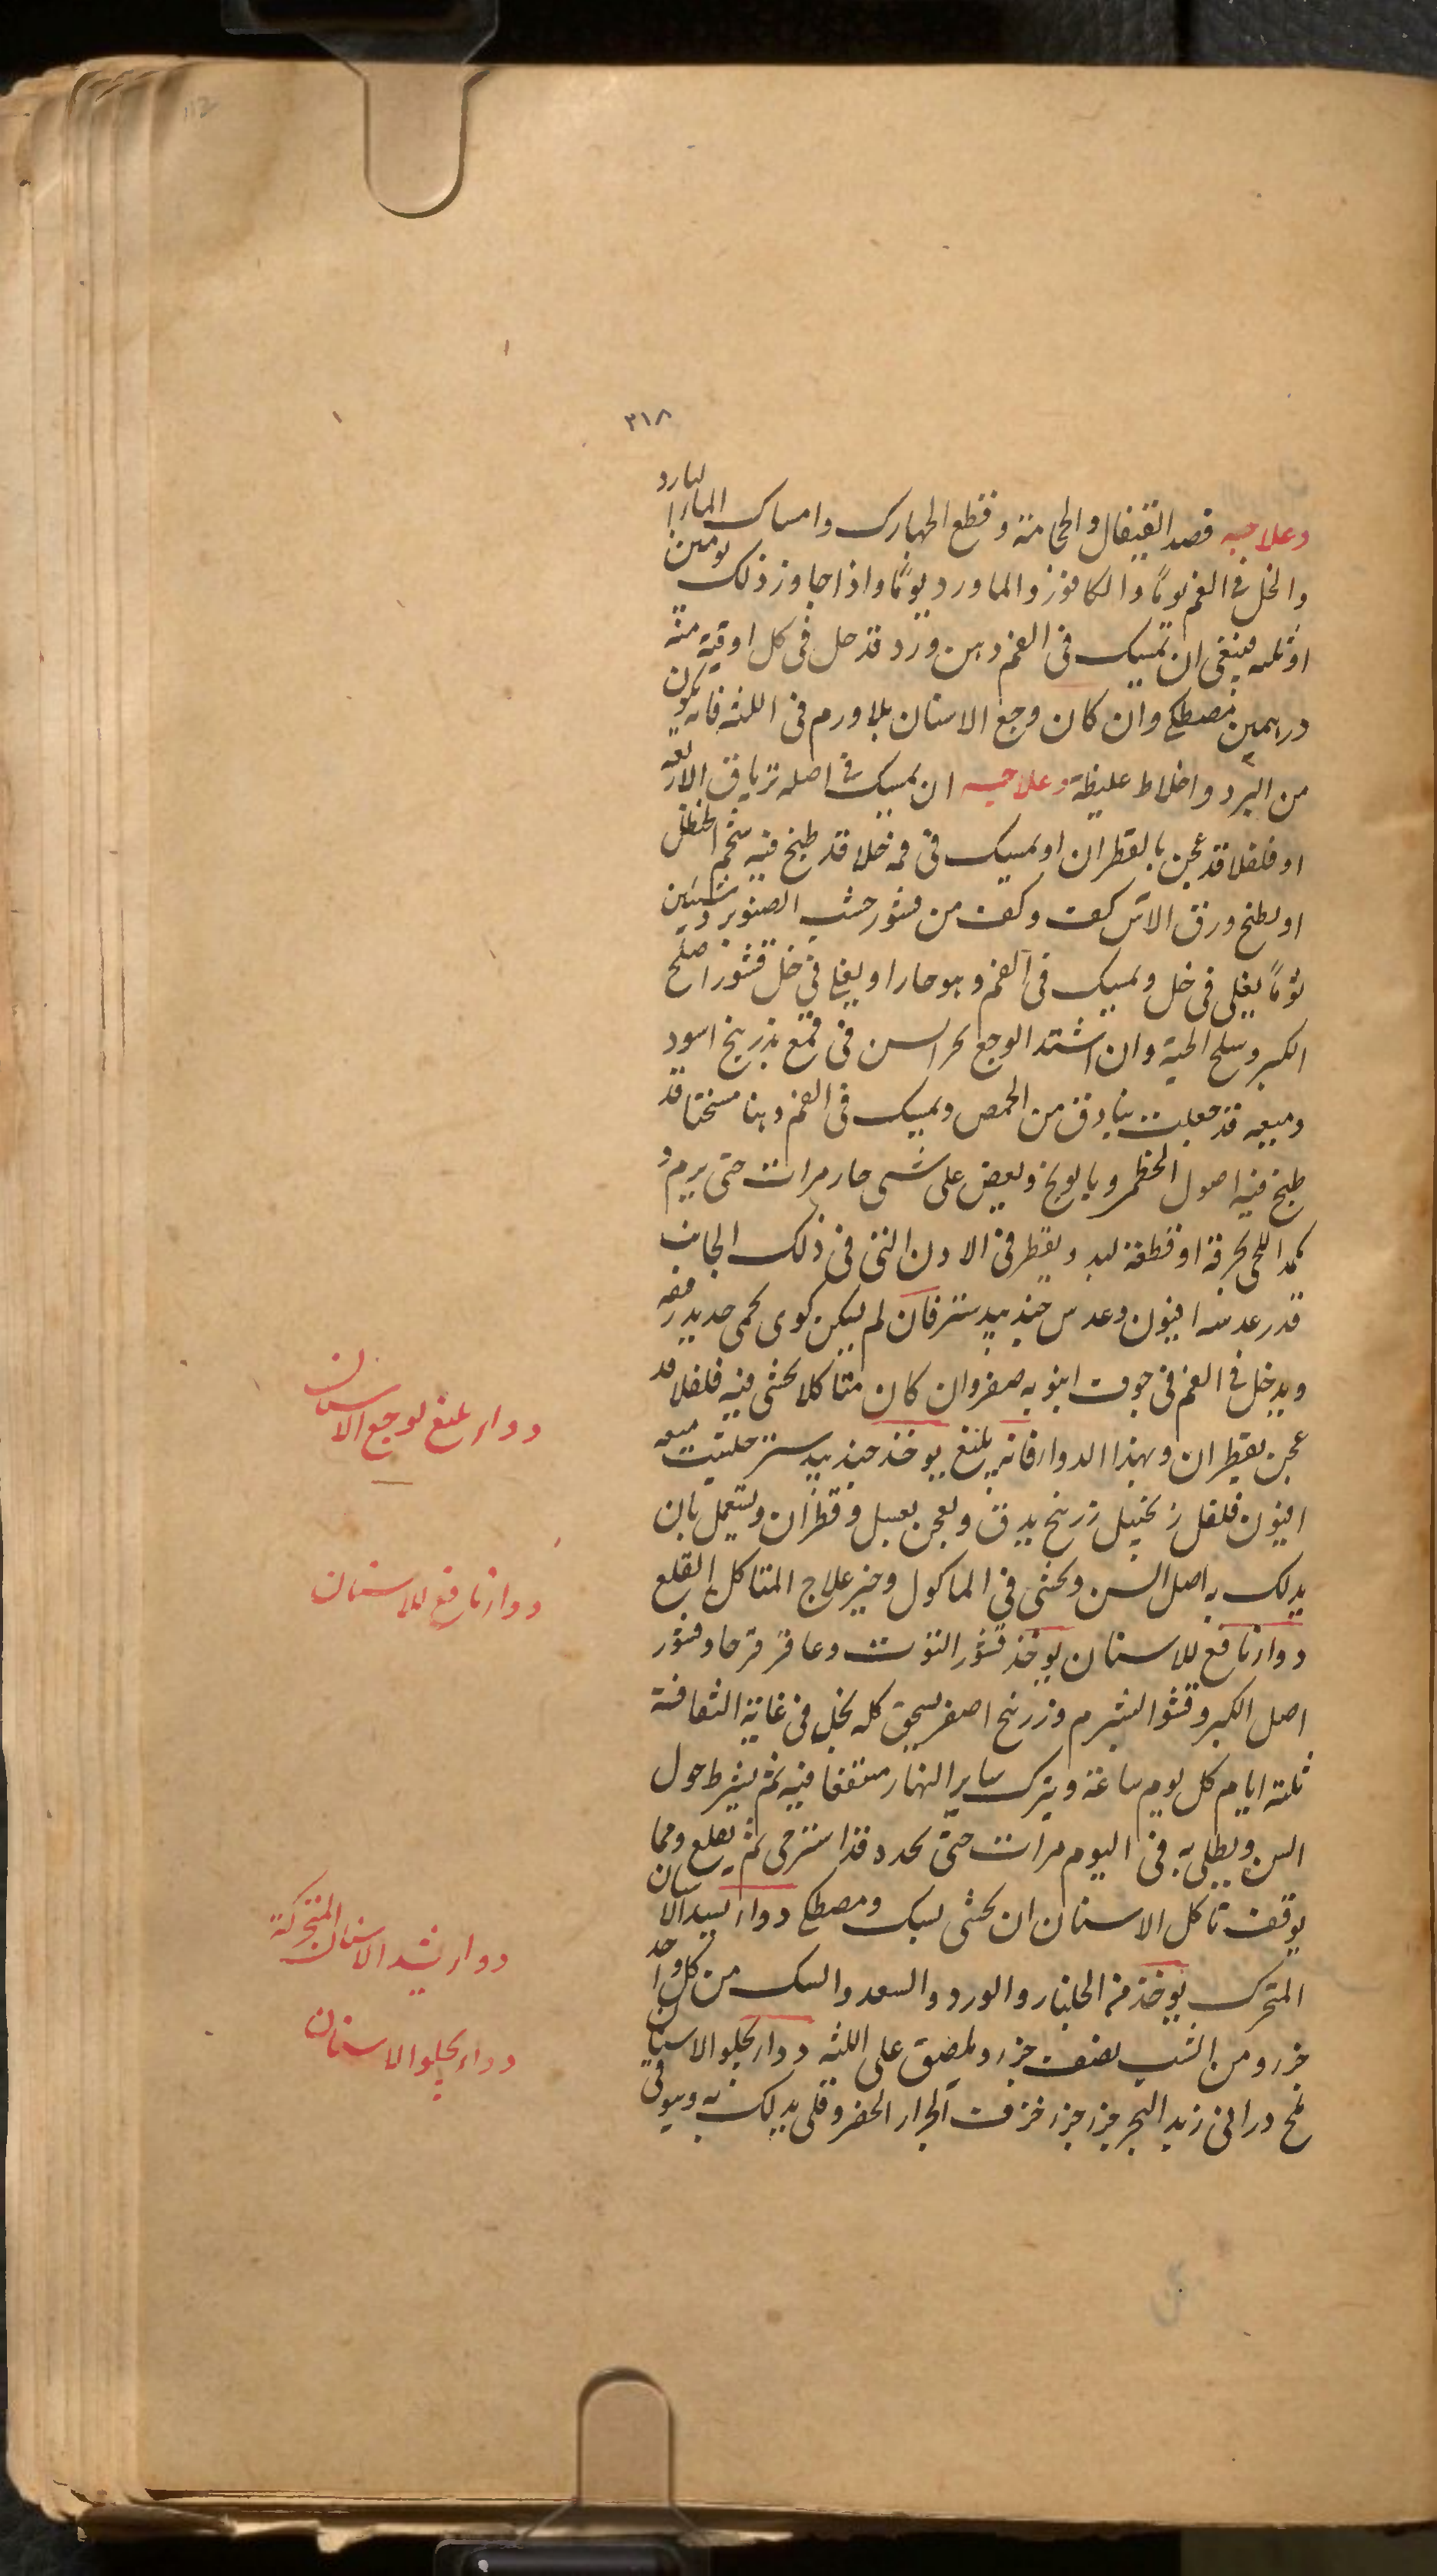 ٣١٨
وعلاجه فصد القيفال والحجامة وقطع الجهارك وامساك الماء البارد
والخل فى الفم يوماً والكافور والماورد يوماً واذا جاوز ذلك يومين
او ثلثه فينبغى ان يمسك فى الفم دهن ورد قد حل فى كل اوقية منه
درهمين مصطكى وان كان وجع الاسنان بلا ورم فى اللثه فانه يكون
من البرد واخلاط غليظة وعلاجه ان يمسك فى اصله ترياق الاربعه
او فلفلا قد عجن بالقطران او يمسك فى فمه خلا قد طبخ فيه شحم الحنظل
او يطبخ ورق الاس كف وكف من قشور خشب الصنوبر وسنين
ثوماً يغلى فى خل ويمسك فى الفم وهو حار او يغلى فى خل قشور اصل
الكبر وسلخ الحية وان اشتد الوجع بخر السن فى قمع ببزر بنج اسود
وميعه قد جعلت بنادق من الحمص ويمسك فى الفم دهنا مسخنا قد
طبخ فيه اصول الخطمى وبابونج ويعض على شى حار مرات حتى يرم و
يكمد اللحى بخرقة او قطعة لبد ويقطر فى الاذن التى فى ذلك الجانب
قدر عدسه افيون وعدس جندبيدستر فان لم يسكن كوى بحمى حديد رفعه
ويدخل فى الفم فى جوف انبوبه صفر وان كان متاكلا يحشى فيه فلفلا قد
عجن بقطران وبهذا الدواء فانه بليغ يوخذ جندبيدستر حلتيت ميعه
افيون فلفل زنجبيل زرنيخ يدق ويعجن بعسل وقطران ويستعمل بان
يدلك به اصل السن ويحشى فى الماكول وخير علاج المتاكل القلع
دواء نافع للاسنان يوخذ قشور التوت وعاقرقرحا وقشور
اصل الكبر وقشور الشبرم وزرنيخ اصفر يسحق كله بخل فى غاية الثقافة
ثلثه ايام كل يوم ساعة ويترك ساير النهار منقعا فيه ثم يشرط حول
السن ويطلى به فى اليوم مرات حتى تجده قد استرخى ثم يقلع ومما
يوقف تاكل الاسنان ان يحشى بسك ومصطكى دواء يشد الاسنان
المتحرك يوخذ من الجلنار والورد والسعد والسك من كل واحد
جزء ومن الشب نصف جزء ويلصق على اللثه دواء يجلو الاسنان
ملح درانى زبد البحر جزء جزء خزف الجرار الخضر وقلى يدلك به ويوقى
دواء بليغ لوجع الاسنان
دواء نافع للاسنان
دواء يشد الاسنان المتحركة
دواء يجلو الاسنان